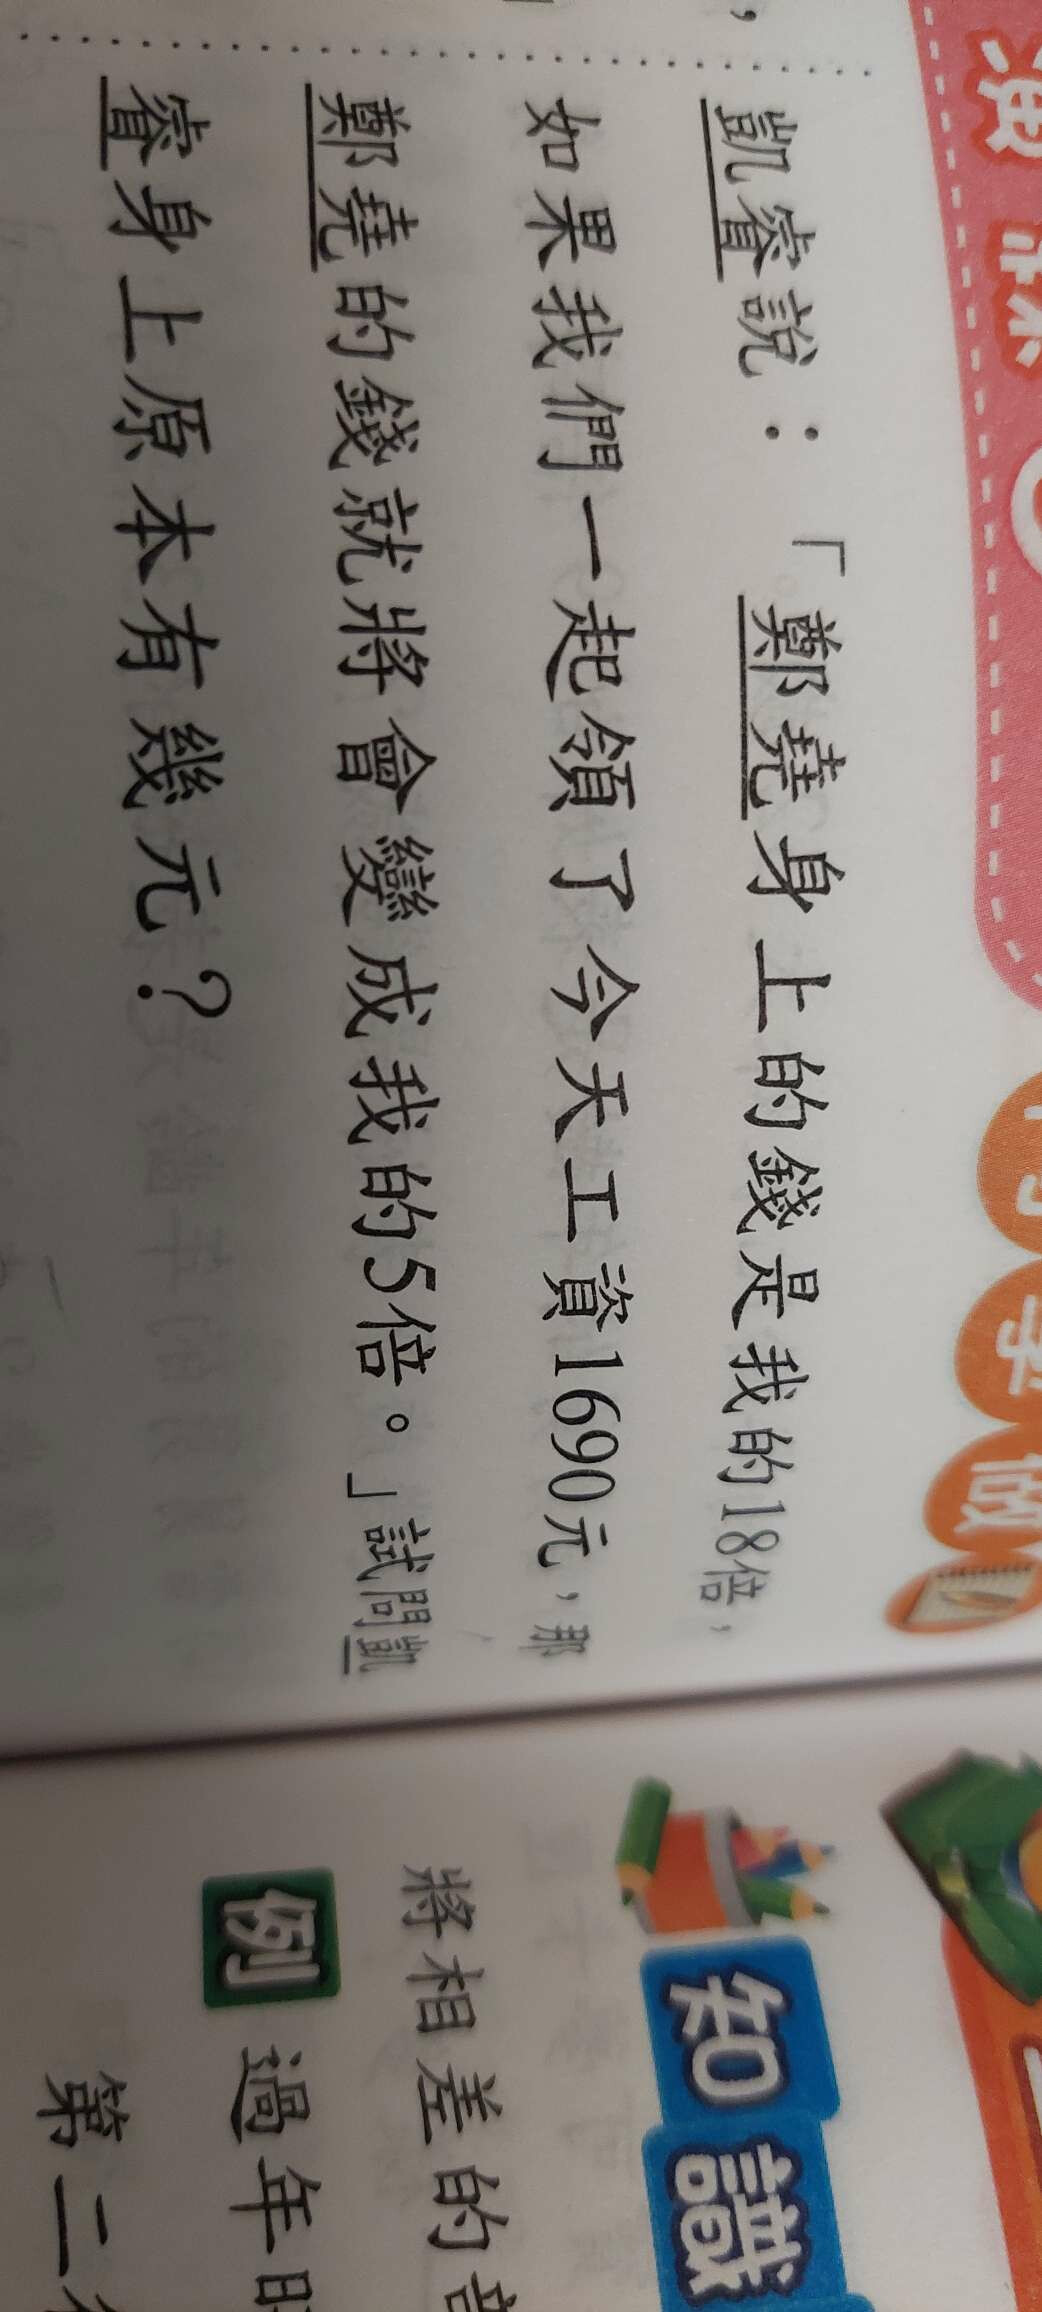 凱睿說：「鄭堯身上的錢是我的18倍，
如果我們一起領了今天工資1690元，那
鄭堯的錢就將會變成我的5倍。」試問凱
睿身上原本有幾元？
知識
將相差的
例 過年
第二